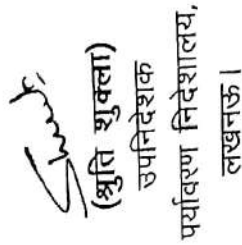 (श्रुति शुक्ला)
उपनिदेशक
पर्यावरण निदेशालय,
लखनऊ।